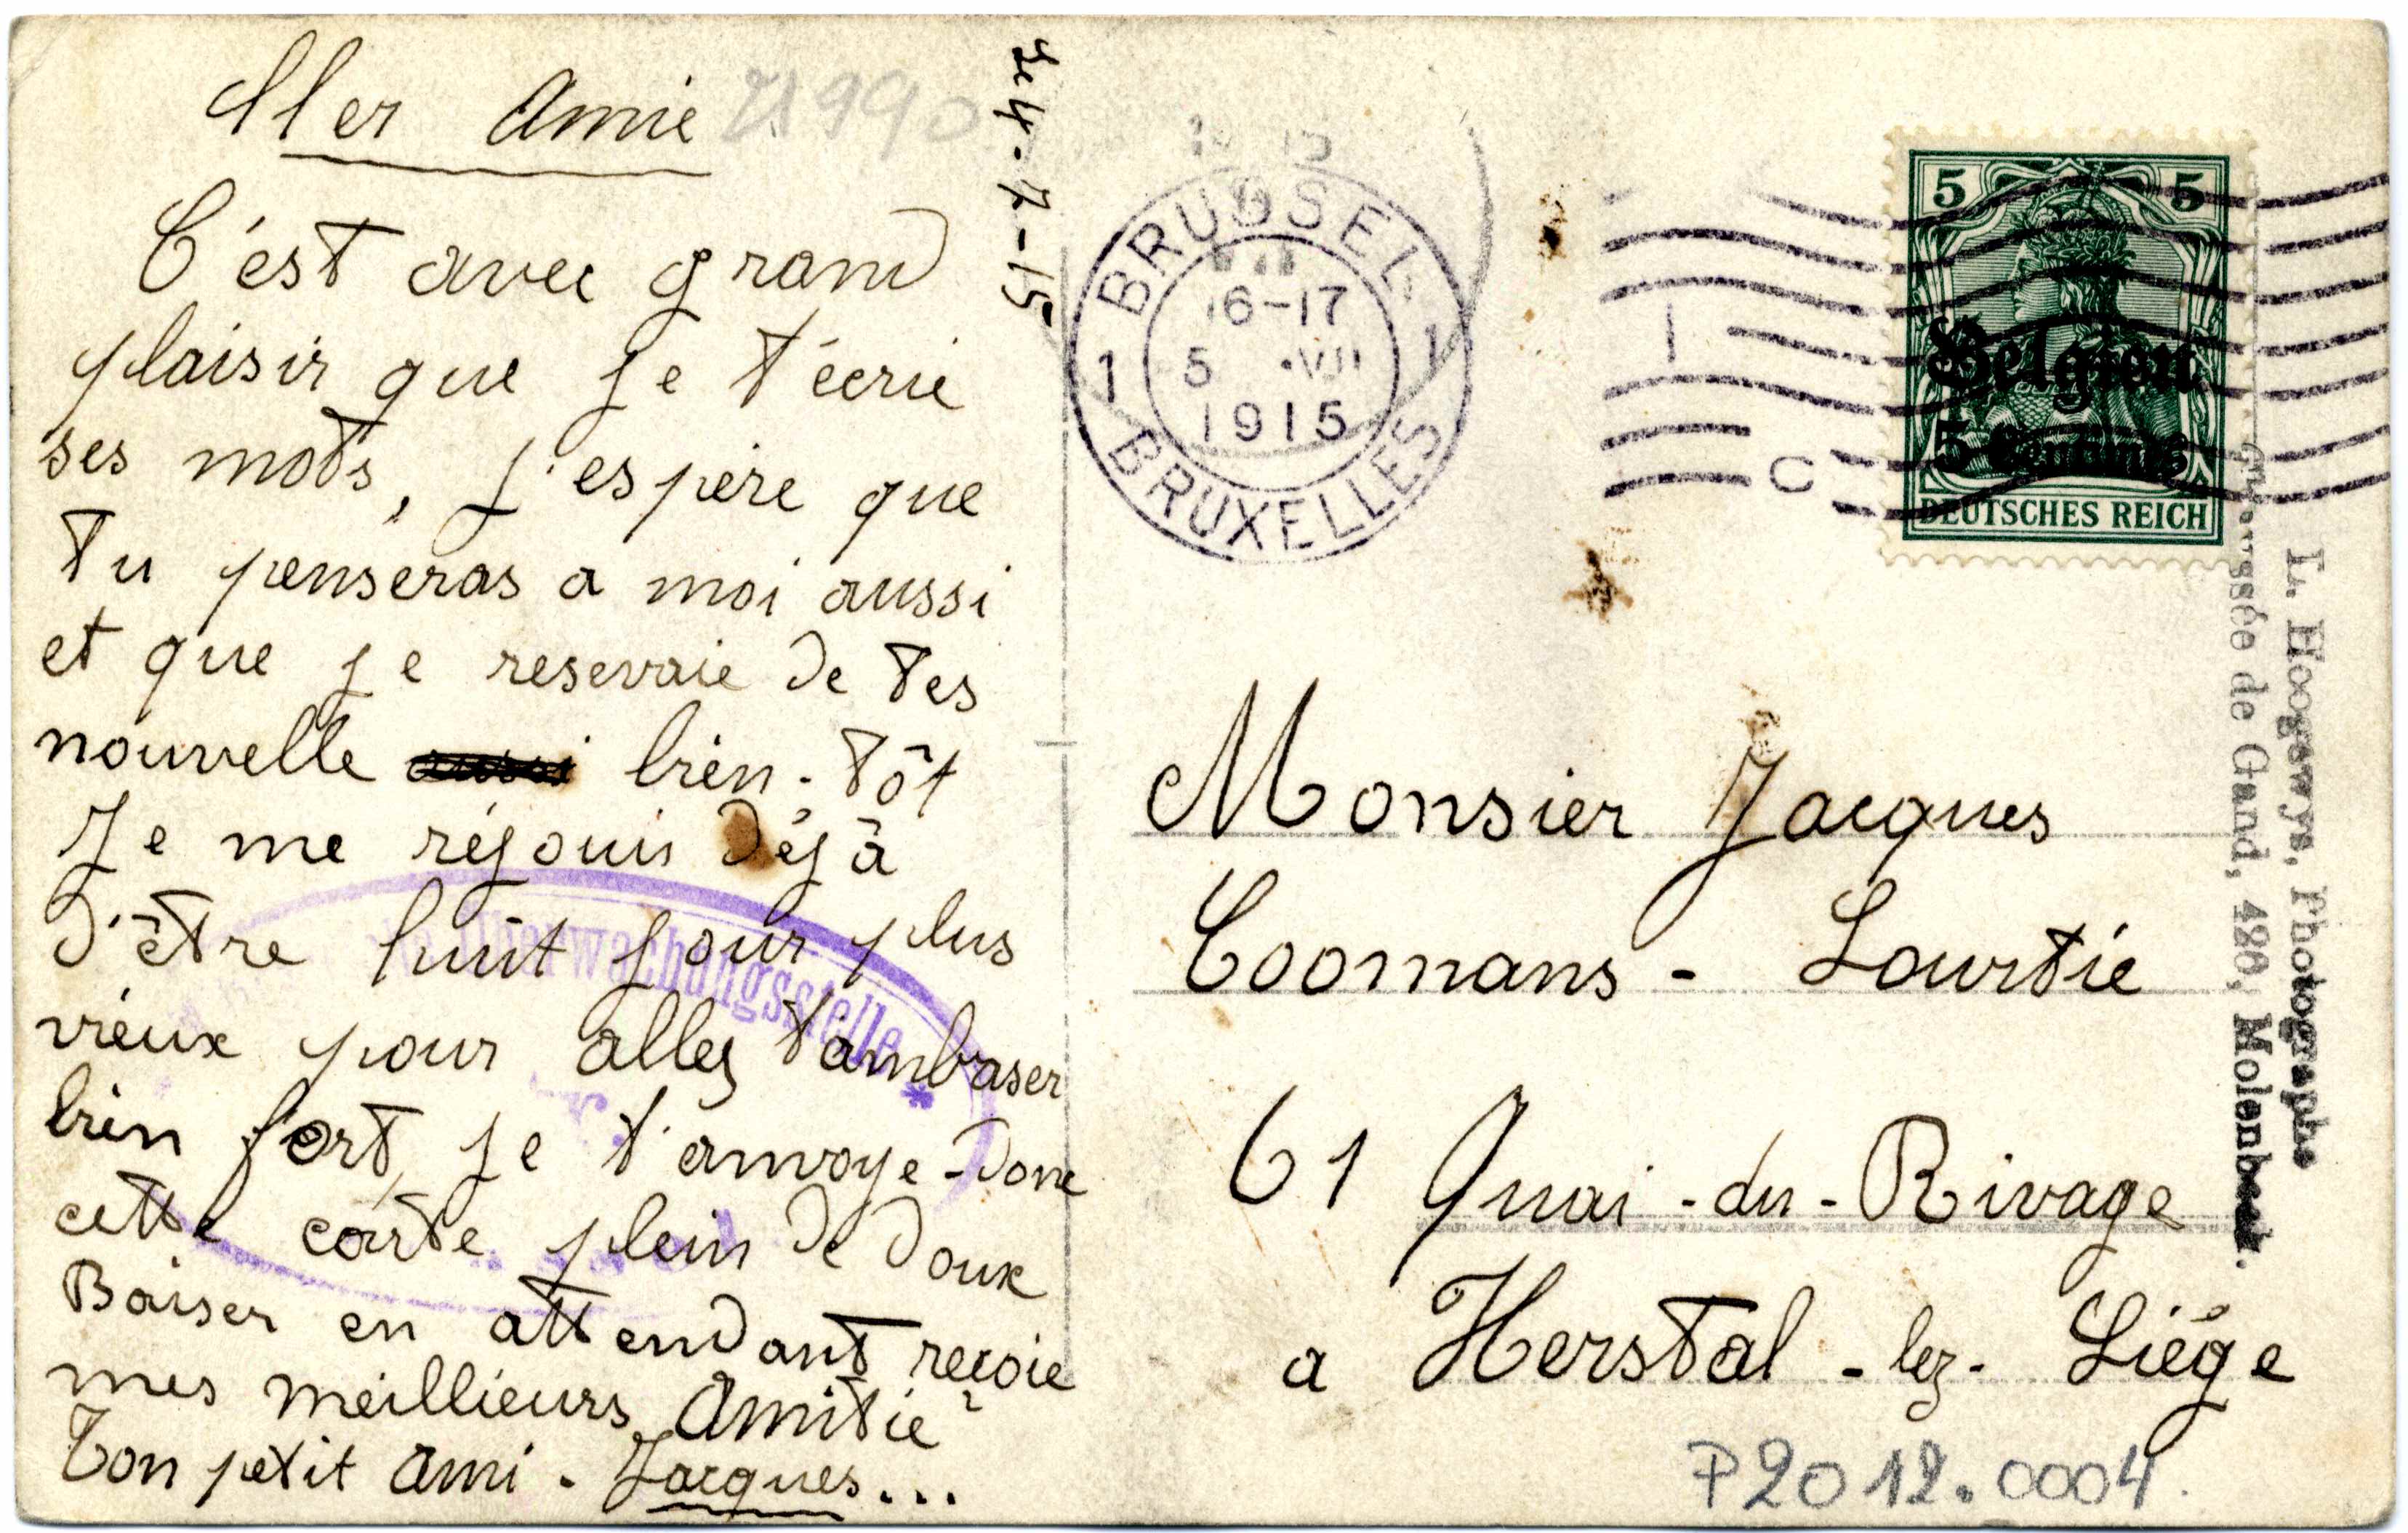 Cher Amie
21990
le 4-7-15
C'est avec grand
plaisir que je t'écrie
ses mots, j'espère que
tu penseras a moi aussi
et que je resevraie de tes
nouvelle aussi bien-tôt
Je me réjouis déjà
d'être huit jour plus
vieux pour allez t'ambraser
bien fort, je t'anvoye-donc
cette carte plein de doux
Baiser en attendant reçoie
mes meillieurs Amitié
Ton petit Ami - Jacques...
Überwachungsstelle *
BRÜSSEL
16-17
1 5 .VII 1
1915
BRUXELLES
5 5
Belgien
5 Centimes
DEUTSCHES REICH
L. Hoogewys, Photographe
Chaussée de Gand, 420, Molenbeek.
Monsier Jacques
Coomans - Lourtie
61 Quai-du-Rivage
a Herstal-lez-Liége
P2012.0004.